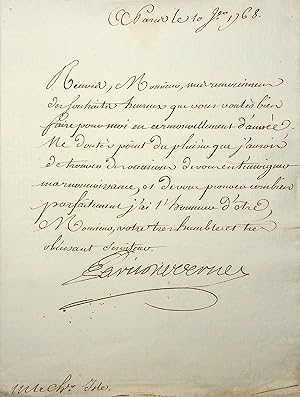 A Paris le 10 Jer 1768.
Recevés, Monsieur, mes remercimens
des souhaits heureux que vous voulés bien
faire pour moi en ce renouvellement d'année.
Ne doutés point du plaisir que j'aurois
de trouver des occasions de vous en temoigner
ma reconnoissance, et de vous prouver combien
parfaitement j'ai l'honneur d'être,
Monsieur, votre très humble et très
obeissant Serviteur.
M. le Chr.